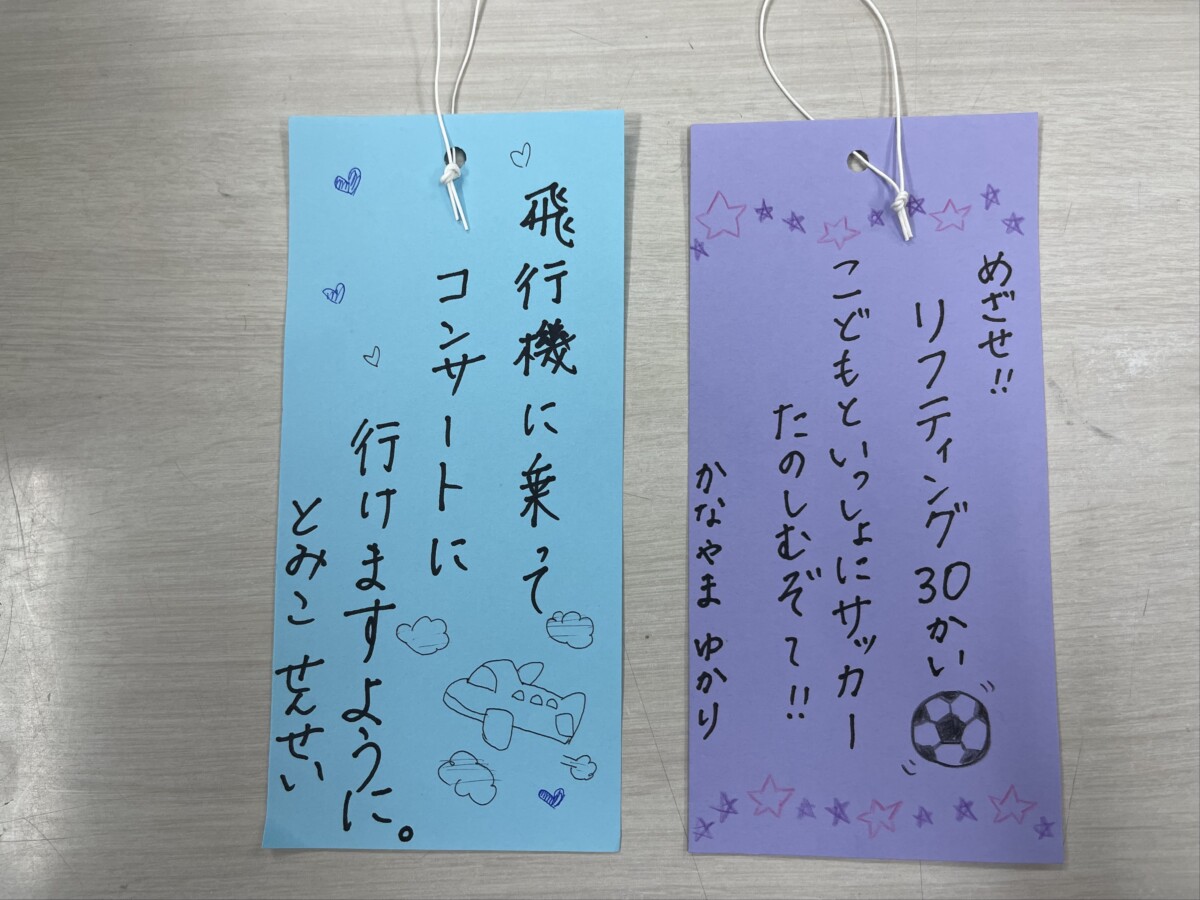 飛行機に乗って
コンサートに
行けますように。
とみこ せんせい
めざせ!!
リフティング30かい
こどもといっしょにサッカー
たのしむぞて!!
かなやま ゆかり